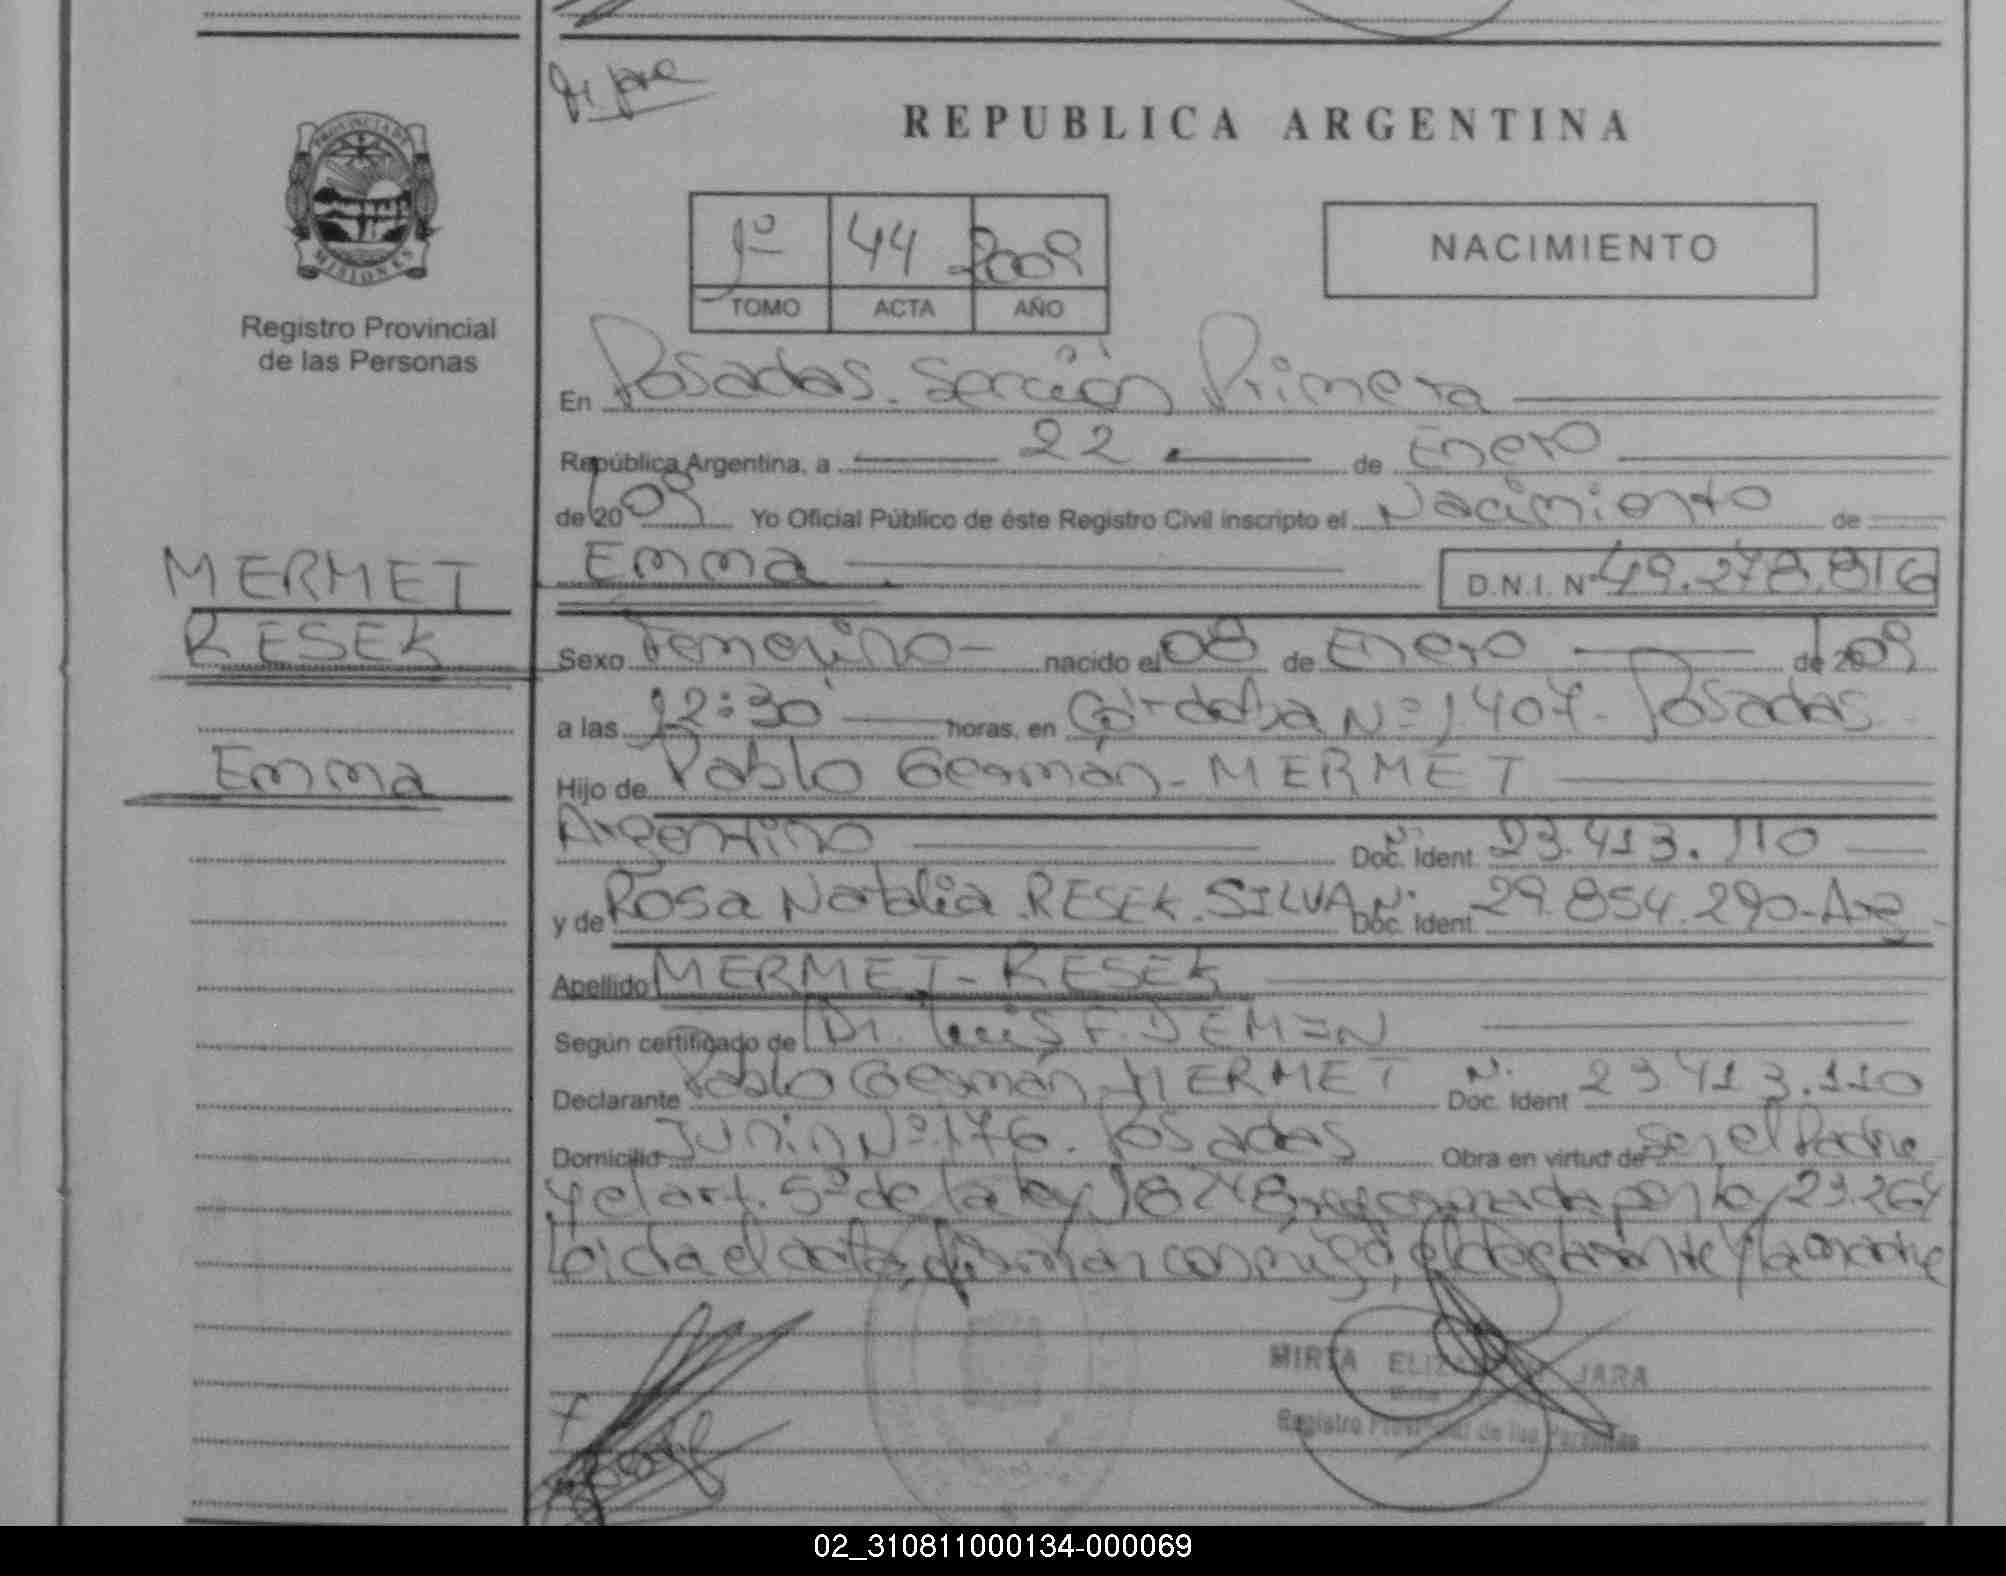 PROVINCIA DE
MISIONES
Registro Provincial
de las Personas
MERMET
RESEK
Emma
REPUBLICA ARGENTINA
1º 44 2009
TOMO ACTA AÑO
NACIMIENTO
En Posadas. Sección Primera
República Argentina, a 22 de Enero
de 2009 Yo Oficial Público de éste Registro Civil inscripto el Nacimiento de
Emma D.N.I. Nº 49.278.816
Sexo Femenino nacido el 08 de Enero de 2009
a las 12:30 horas, en Córdoba Nº 1407. Posadas
Hijo de Pablo Germán - MERMET
Argentino Doc. Ident. N. 23.413.110
y de Rosa Natalia RESEK. SILVA N. Doc. Ident. 29.854.290-Arg
Apellido MERMET - RESEK
Según certificado de Dr. Luis F. DEMEN
Declarante Pablo Germán MERMET N. Doc. Ident 23.413.110
Domicilio Junín Nº 176. Posadas Obra en virtud de Ser el Padre
y el art. 5º de la ley 18248, por la 23.264
Leida el acta, firman conmigo, el declarante y la madre
MIRTA JARA
Registro Provincial de las Personas
02_310811000134-000069